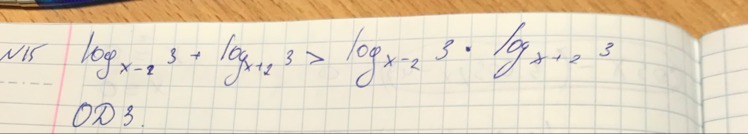 N15 log_{x-2} 3 + log_{x+2} 3 > log_{x-2} 3 · log_{x+2} 3
ОДЗ.